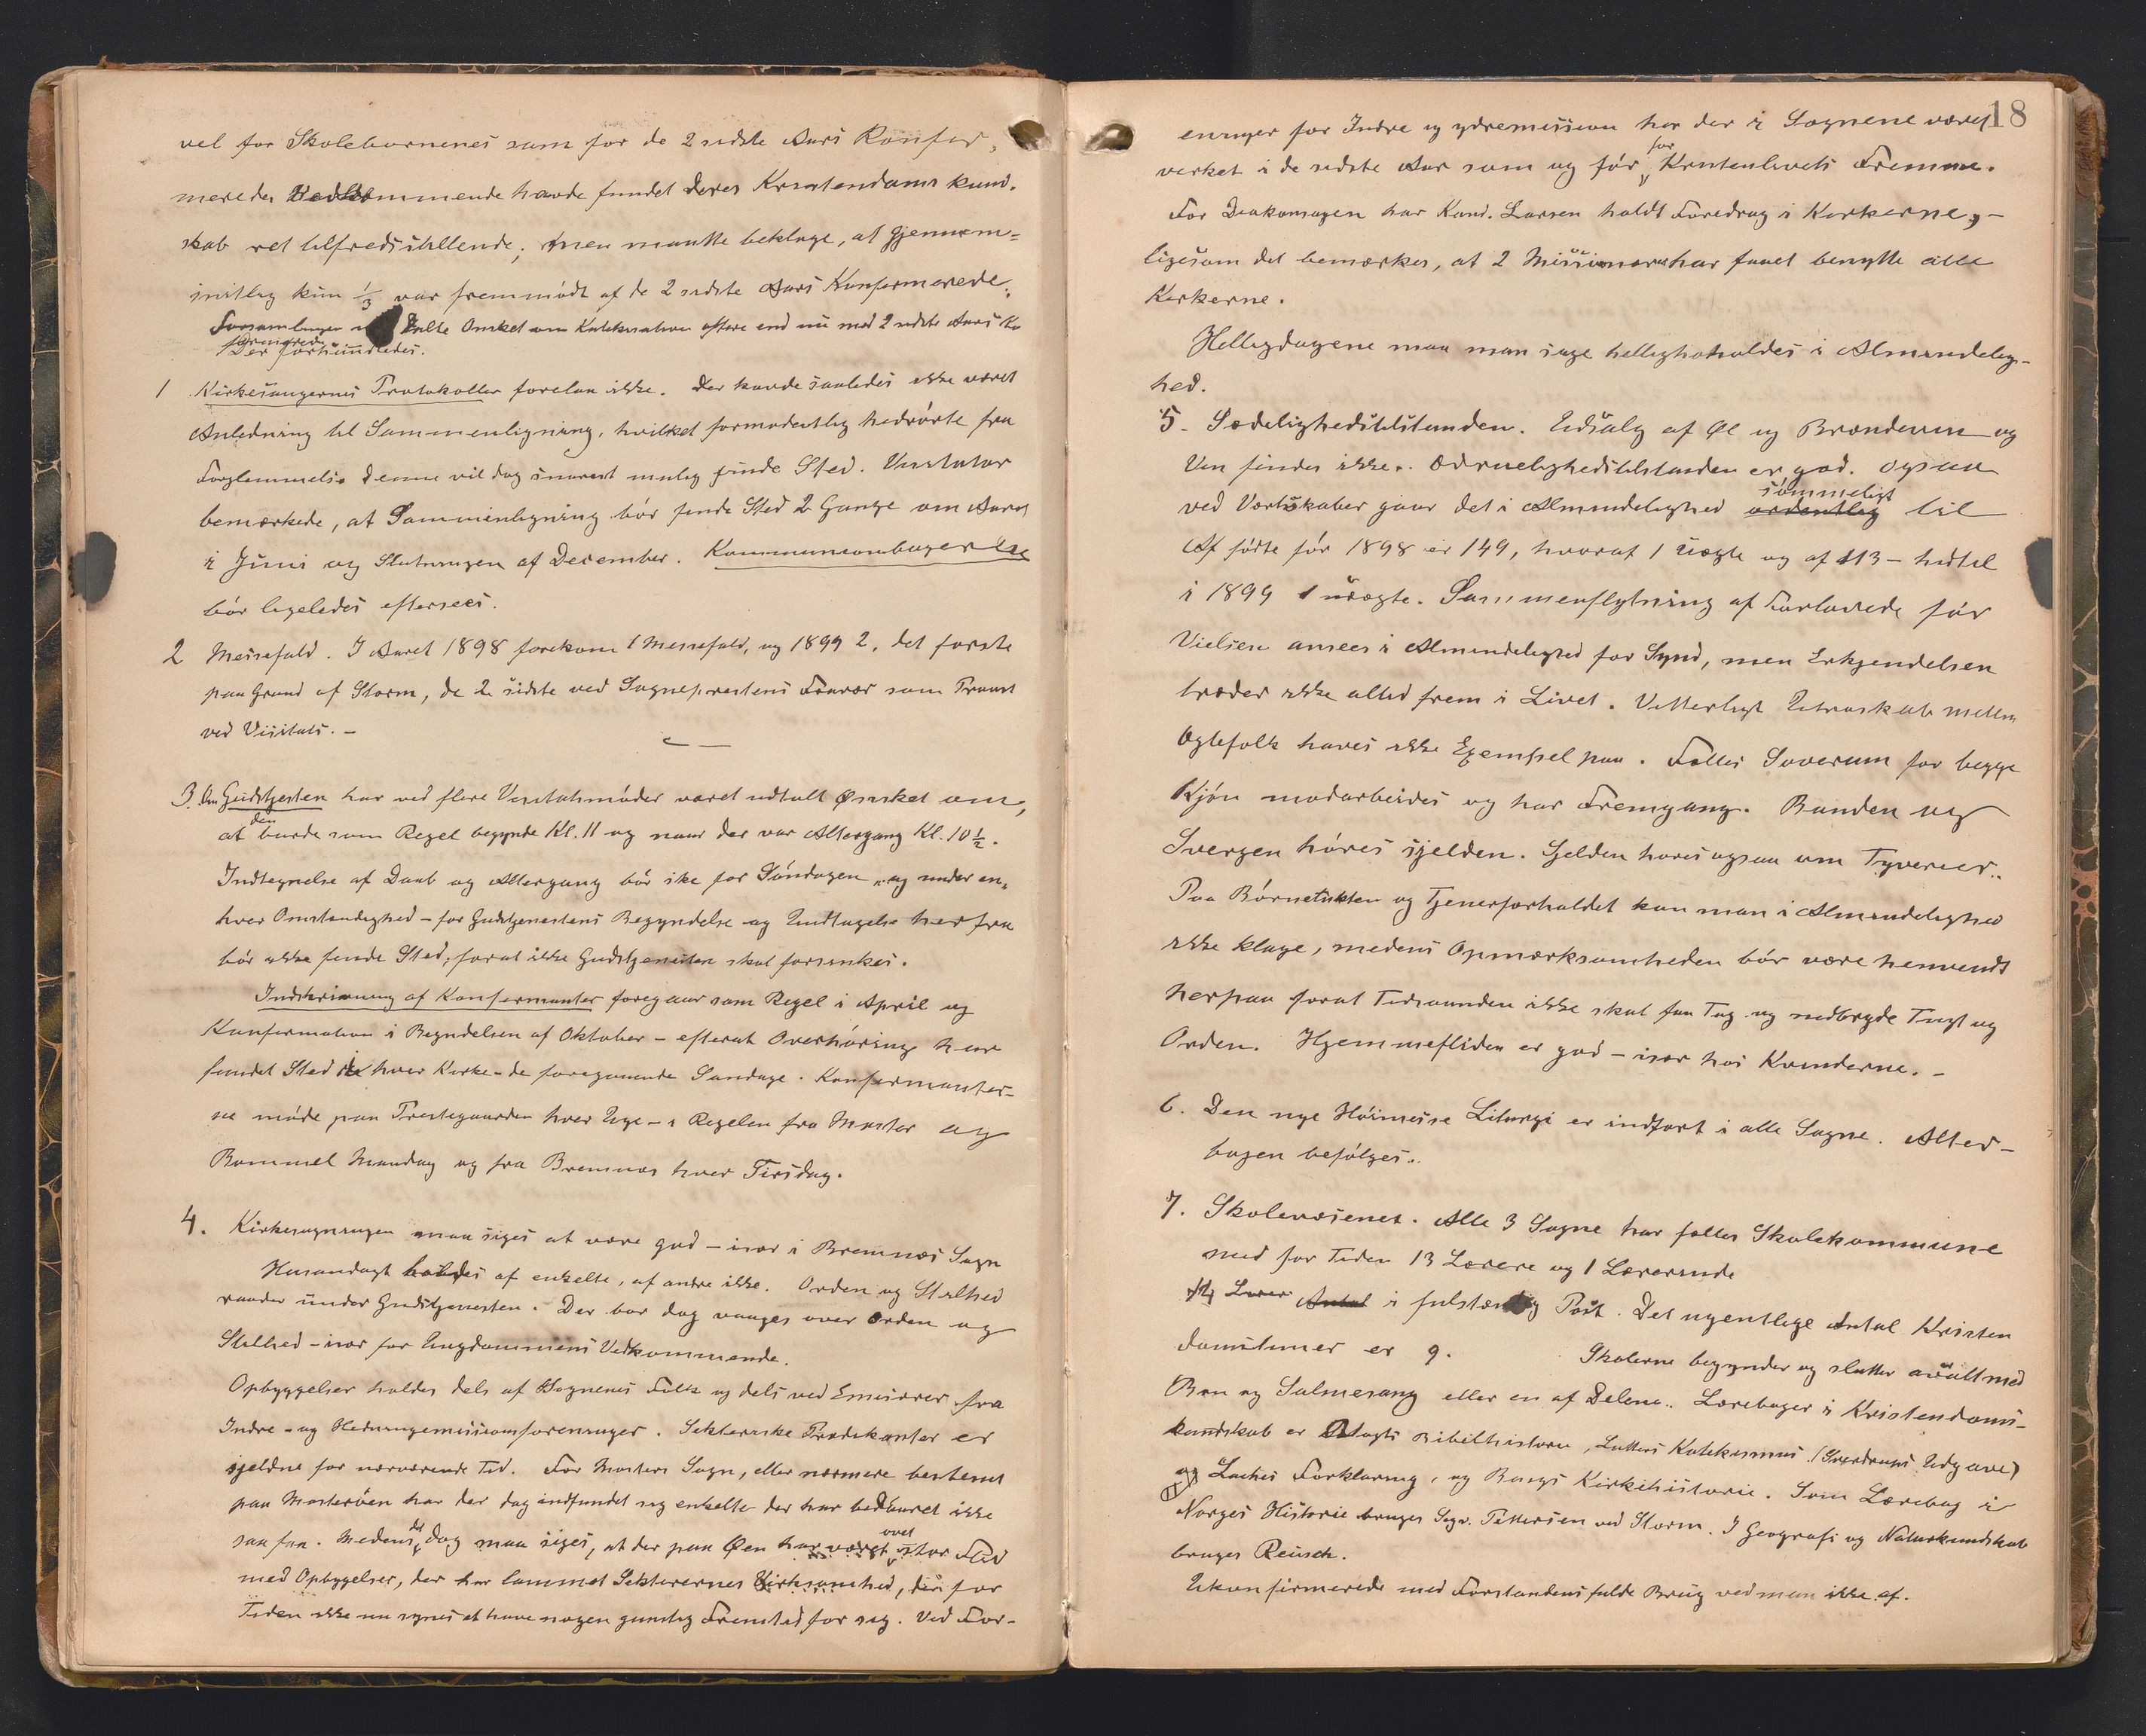 vel for Skolebørnenes som for de 2 sidste Aars Konfir-
merede. Vedkommende havde fundet deres Kristendomskund-
skab ret tilfredsstillende; men maatte beklage, at gjennem-
snitlig kun 1/3 var fremmødt af de 2 sidste Aars Konfirmerede.
Forsamlingen delte Ønsket om Katekisation oftere end nu med 2 sidste Aars Kon
firmerede
Der forhandledes.
1 Kirkesangernes Protokoller forelaa ikke. Der havde saaledes ikke været
Anledning til Sammenligning, hvilket formodentlig hidrørte fra
Forglemmelse. Denne vil dog snarest mulig finde Sted. Visitator
bemærkede, at Sammenligning bør finde Sted 2 Gange om Aaret
i Juni og Slutningen af December. Kommunionbøgerne
bør ligeledes eftersees.
2 Messefald. I Aaret 1898 forekom 1 Messefald, og 1899 2, det første
paa Grund af Storm, de 2 sidste ved Sognepræstens Fravær som Provst
ved Visitats. –
3. Om Gudstjesten har ved flere Visitatsmøder været udtalt Ønsket om,
at den burde som Regel begynde Kl. 11 og naar der var Altergang Kl. 10 1/2.
Indtegnelse af Daab og Altergang bør ske før Søndagen og under en-
hver Omstændighed – før Gudstjenestens Begyndelse og Undtagelse herfra
bør ikke finde Sted, forat ikke Gudstjenesten skal forsinkes.
Indskrivning af Konfirmanter foregaar som Regel i April og
Konfirmation i Begyndelsen af Oktober – efterat Overhøring har
fundet Sted i hver Kirke – de foregaaende Søndage. Konfirmanter-
ne møde paa Prestegaarden hver Uge – i Regelen fra Moster og
Bømmel Mandag og fra Bremnes hver Tirsdag.
4. Kirkesøgningen maa siges at være god – især i Bremnes Sogn
Husandagt holdes af enkelte, af andre ikke. Orden og Stilhed
raader under Gudstjenesten. Der bør dog vaages over Orden og
Stilhed – især for Ungdommens Vedkommende.
Opbyggelser holdes dels af Sognenes Folk og dels ved Emissærer fra
Indre- og Hedningemissionsforeninger. Sekteriske Prædikanter er
sjeldne for nærværende Tid. For Mosters Sogn, eller nærmere bestemt
paa Mosterøen har der dog indfundet sig enkelte der har bedaaret ikke
saa faa. Medens det dog maa siges, at der paa Øen har været øvet stor Flid
med Opbyggelser, der har lammet Sekterernes Virksomhed, der for
Tiden ikke nu synes at have nogen gunstig Fremtid for sig. Ved For-
18
eninger for Indre og ydremission har der i Sognene været
virket i de sidste Aar som og før for Kristenlivets Fremme.
For Diakonsagen har Kand. Larsen holdt Foredrag i Kirkerne, –
ligesom det bemærkes, at 2 Missionærer har faaet benytte alle
Kirkerne.
Helligdagene maa man sige helligholdes i Almindelig-
hed.
5. Sædelighedstilstanden. Udsalg af Øl og Brændevin og
Vin findes ikke. Ædruelighedstilstanden er god. Ogsaa
ved Værtskaber gaar det i Almindelighed ordentlig sømmeligt til
Af fødte for 1898 er 149, hvoraf 1 uægte og af 113 – hidtil
i 1899 1 uægte. Sammenflytning af Forlovede før
Vielsen ansees i Almindelighed for Synd, men Erkjendelsen
træder ikke altid frem i Livet. Vitterligt Utroskab mellem
Ægtefolk haves ikke Exempel paa. Fælles Soverum for begge
Kjøn modarbeides og har Fremgang. Banden og
Sværgen høres sjelden. Sjelden høres ogsaa om Tyverier.
Paa Børnetukten og Tjenerforholdet kan man i Almindelighed
ikke klage, medens Opmærksomheden bør være henvendt
herpaa forat Tidsaanden ikke skal faa Tag og nedbryde Tugt og
Orden. Hjemmefliden er god – især hos Kvinderne. –
6. Den nye Høimesse Liturgi er indført i alle Sogne. Alter-
bogen befølges.
7. Skolevæsenet. Alle 3 Sogne har fælles Skolekommune
med for Tiden 13 Lærere og 1 Lærerinde
Antal i fulstændig Post. Det ugentlige Antal Kristen
domstimer er 9. Skolerne begynder og slutter overalt med
Bøn og Salmesang eller en af Delene. Lærebøger i Kristendoms-
kundskab er Vogts Bibelhistorie, Luthers Katekismus (Sverdrups Udgave)
og Lockes Forklaring, og Bangs Kirkehistorie. Som Lærebog i
Norges Historie bruges Sigv. Pettersen ved Storm. I Geografi og Naturkundskab
bruges Reusch.
Ukonfirmerede med Forstandens fulde Brug ved man ikke af.